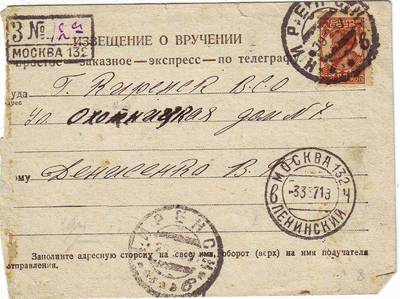 З № 152
МОСКВА 132
ИЗВЕЩЕНИЕ О ВРУЧЕНИИ
простое — заказное — экспресс — по телеграфу
Куда г. Киренск ВСО
Адрес ул Охотницкая дом № 7
Кому Денисенко В.
КИРЕНСК
МОСКВА 132
-3 3 3 713
6 Ч
ЛЕНИНСКИЙ
КИРЕНСК
Заполните адресную сторону на свое имя, оборот (верх) на имя получателя
отправления.